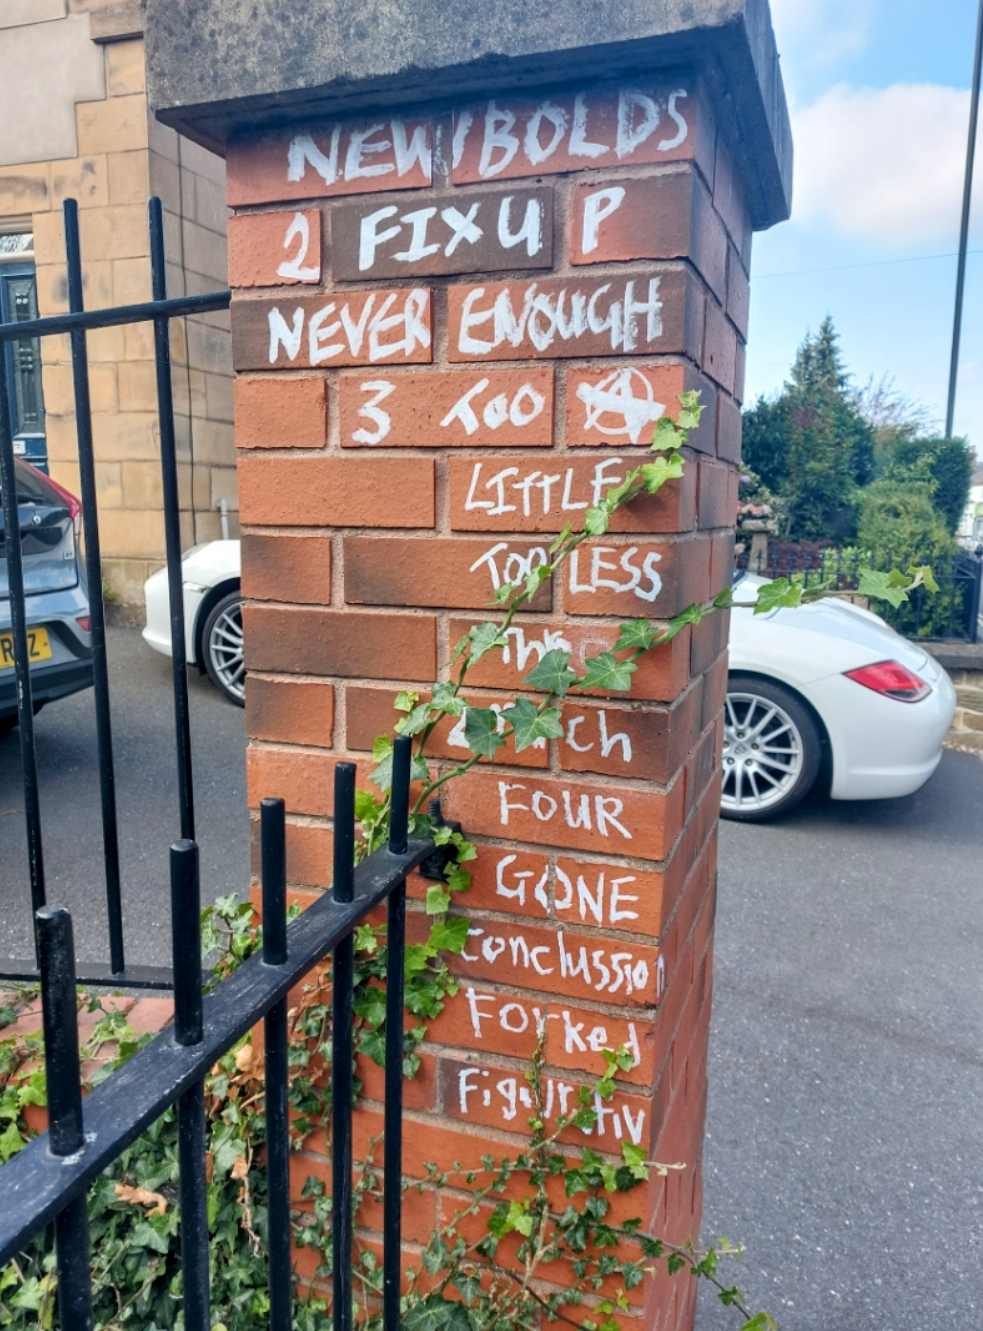 NEW/BOLDS
2 FIX U P
NEVER ENOUGH
3 TOO Ⓐ
LITTLE
TOO LESS
2 much
FOUR
GONE
conclussion
Forked
Figurativ